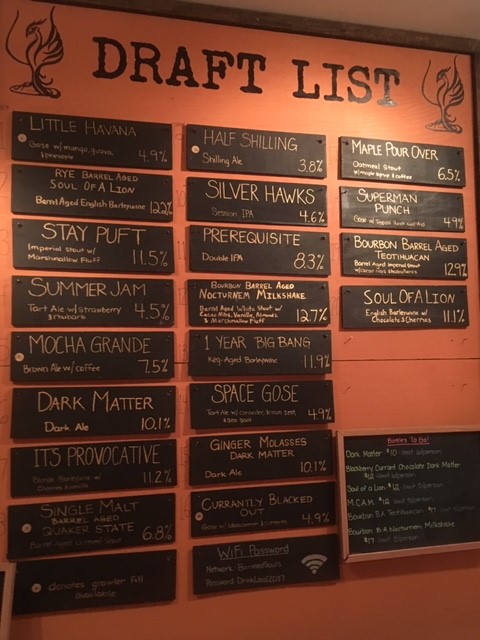 DRAFT LIST
LITTLE HAVANA
Gose w/ mango, guava,
& pineapple
4.9%
RYE BARREL AGED
SOUL OF A LION
Barrel Aged English Barleywine
12.2%
STAY PUFT
Imperial stout w/
Marshmallow Fluff
11.5%
SUMMER JAM
Tart Ale w/ strawberry
& rhubarb
4.5%
MOCHA GRANDE
Brown Ale w/ coffee
7.5%
DARK MATTER
Dark Ale
10.1%
IT'S PROVOCATIVE
Blonde Barleywine w/
Cherries & vanilla
11.2%
SINGLE MALT
BARREL AGED
QUAKER STATE
Barrel Aged Oatmeal Stout
6.8%
denotes growler fill
available
HALF SHILLING
Shilling Ale
3.8%
SILVER HAWKS
Session IPA
4.6%
PREREQUISITE
Double IPA
8.3%
BOURBON BARREL AGED
NOCTURNEM MILKSHAKE
Barrel Aged White Stout w/
Cacao Nibs, Vanilla, Almonds
& Marshmallow Fluff
12.7%
1 YEAR BIG BANG
Keg-Aged Barleywine
11.9%
SPACE GOSE
Tart Ale w/ coriander, lemon zest,
& sea salt
4.9%
GINGER MOLASSES
DARK MATTER
Dark Ale
10.1%
CURRANTLY BLACKED
OUT
Gose w/
4.9%
WiFi Password
Network:
Password: DrinkLocal2017
MAPLE POUR OVER
Oatmeal Stout
w/ maple syrup & coffee
6.5%
SUPERMAN
PUNCH
Gose w/
4.9%
BOURBON BARREL AGED
TEOTIHUACAN
Barrel Aged Imperial Stout
12.9%
SOUL OF A LION
English Barleywine w/
Chocolate & Cherries
11.1%
Bottles To Go!
Dark Matter $10
Blackberry Currant Chocolate Dark Matter
Soul of a Lion $12
M.C.A.M.
Bourbon B.A. Teotihuacan $17
Bourbon B.A. Nocturnem Milkshake
$17